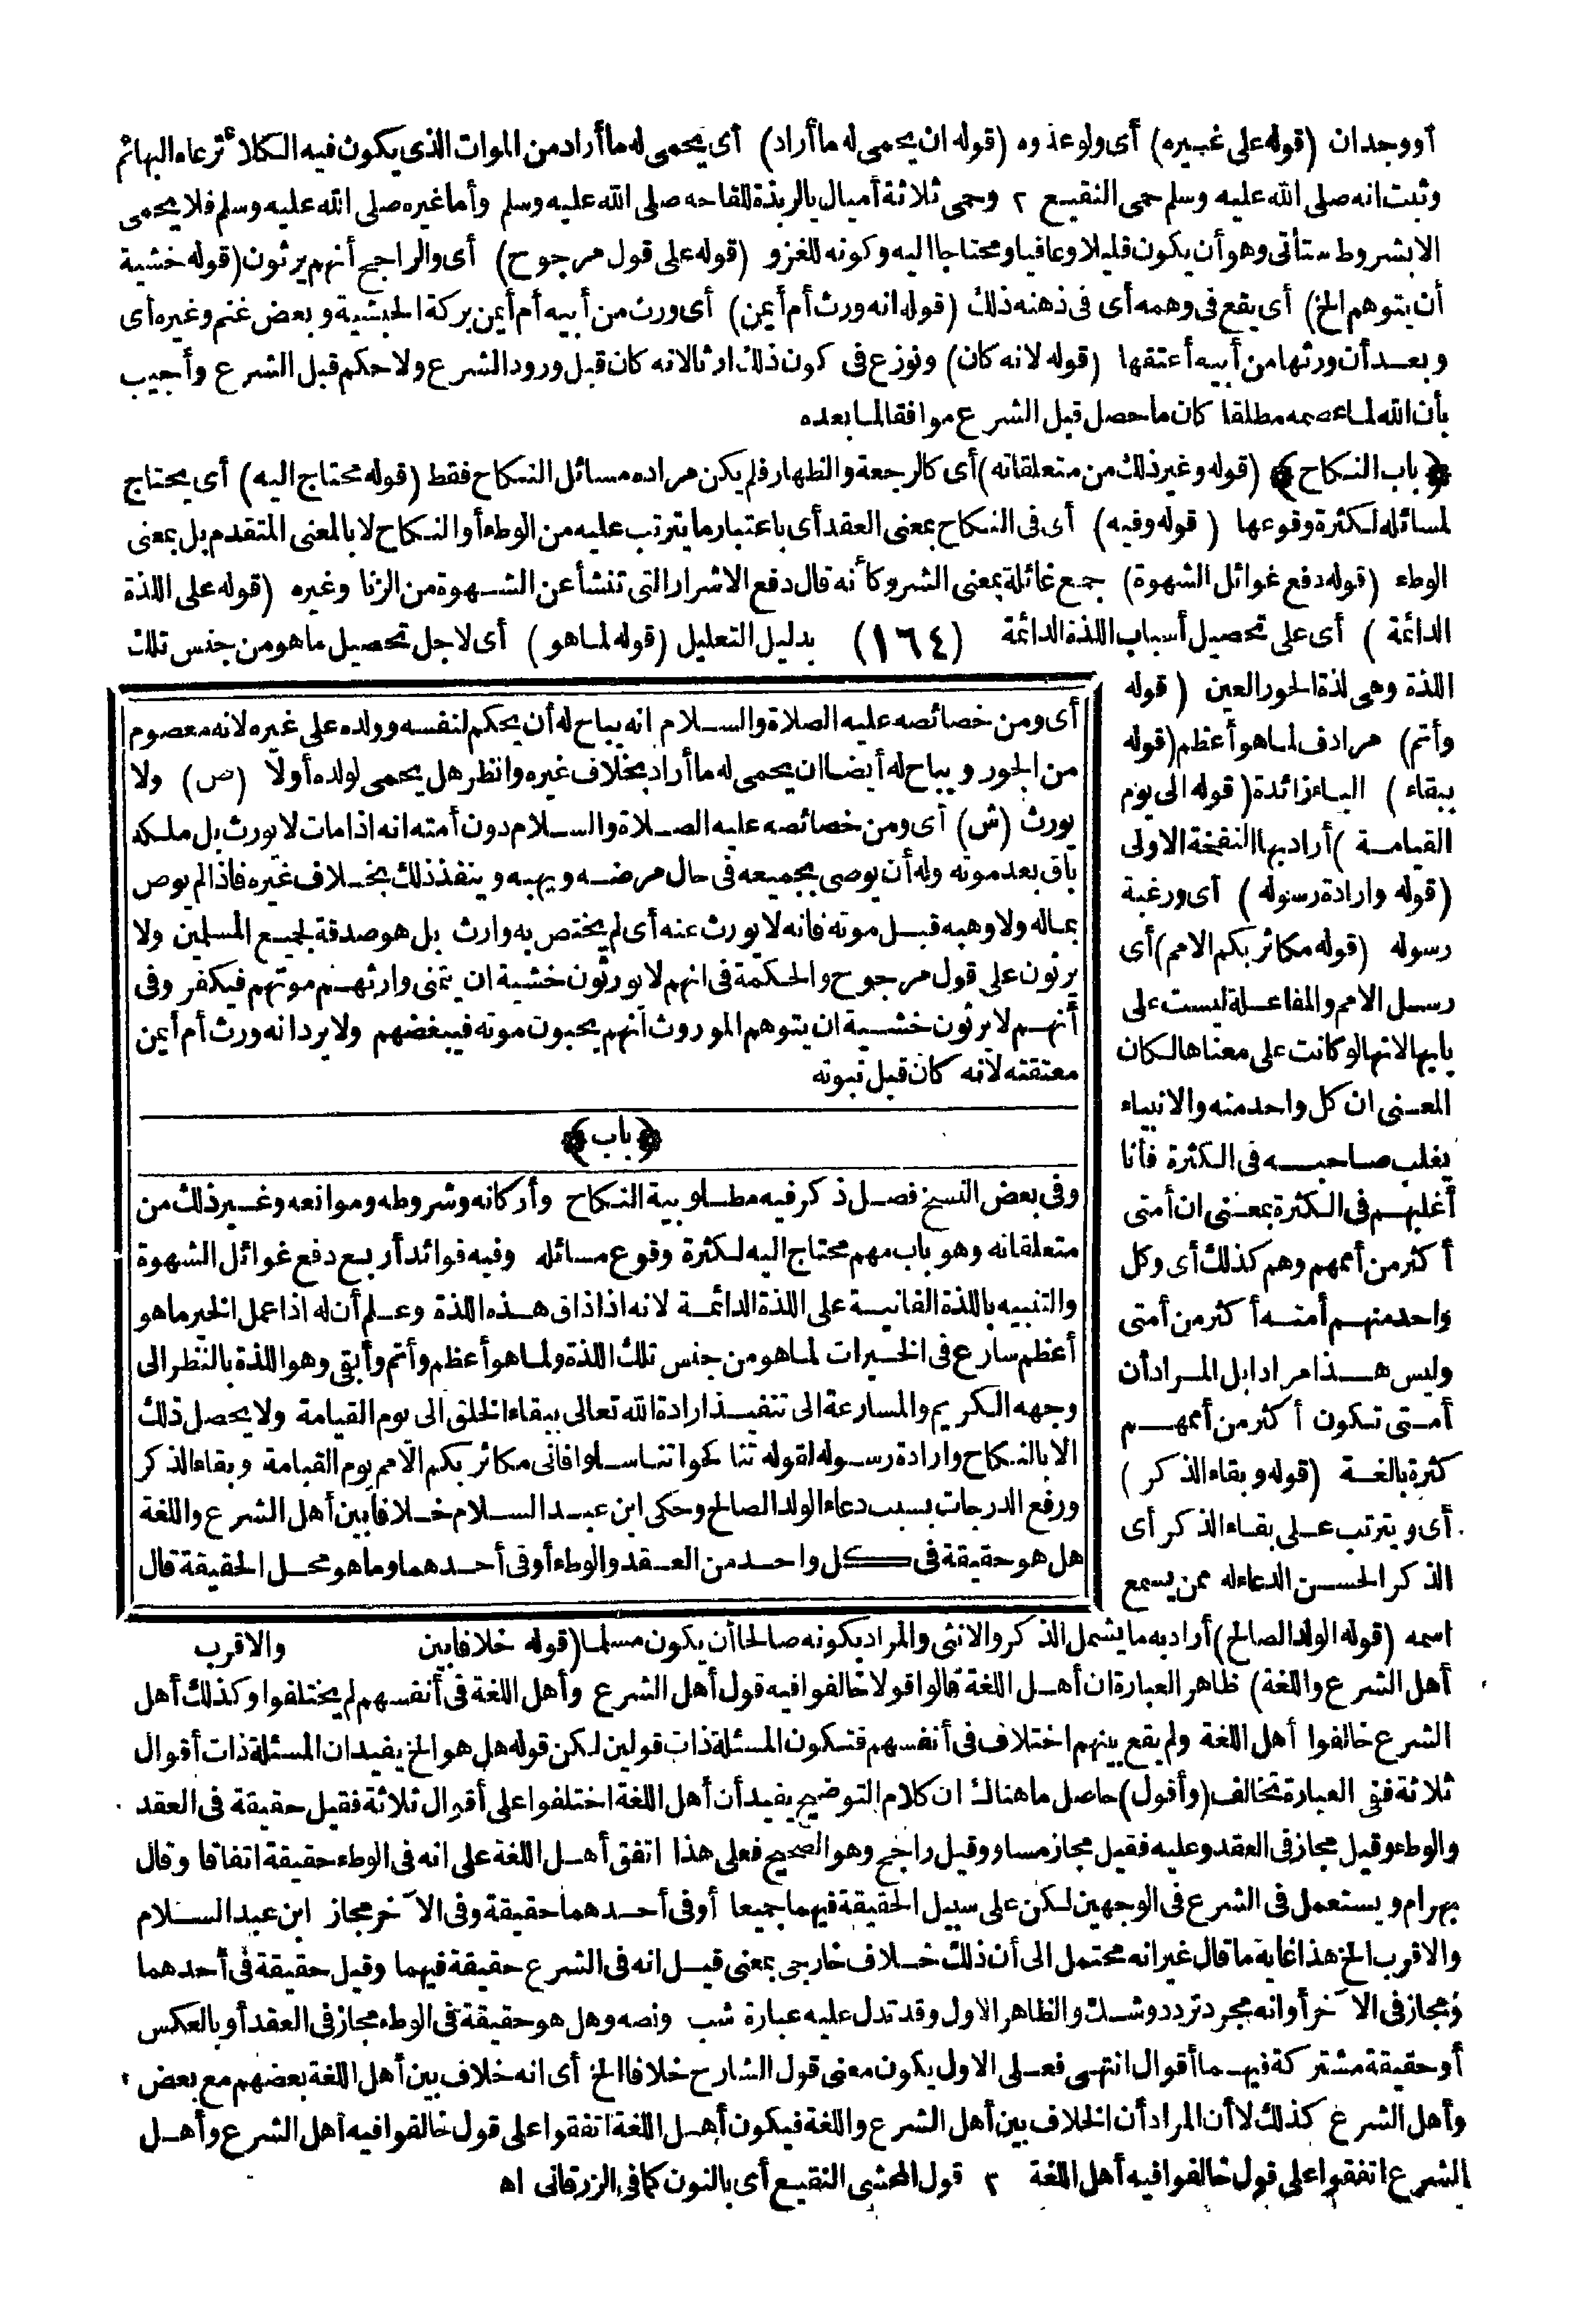 أووجدان (قوله على غبيره) أى ولوعذوه (قوله ان يحمى له ما أراد) أى يحمى له ما أراد من الموات الذى يكون فيه الكلأ ترعاه البهائم
وثبت انه صلى الله عليه وسلم حمى النقيع ٢ وحمى ثلاثة أميال بالربذة للقاحه صلى الله عليه وسلم وأما غيره صلى الله عليه وسلم فلا يحمى
الا بشروط ستأتى وهو أن يكون قليلا وعافيا ومحتاجا اليه وكونه للغزو (قوله على قول مرجوح) أى والراجح أنهم يرثون (قوله خشية
أن يتوهم الخ) أى يقع فى وهمه أى فى ذهنه ذلك (قوله انه ورث أم أيمن) أى ورث من أبيه أم أيمن بركة الحبشية وبعض غنم وغيره أى
وبعد أن ورثها من أبيه أعتقها (قوله لانه كان) ونوزع فى كون ذلك ارثا لانه كان قبل ورود الشرع ولا حكم قبل الشرع وأجيب
بأن الله لما عصمه مطلقا كان ما حصل قبل الشرع موافقا لما بعده
﴿باب النكاح﴾ (قوله وغير ذلك من متعلقاته) أى كالرجعة والظهار فلم يكن مراده مسائل النكاح فقط (قوله محتاج اليه) أى يحتاج
لمسائله لكثرة وقوعها (قوله وفيه) أى فى النكاح بمعنى العقد أى باعتبار ما يترتب عليه من الوطء أو النكاح لا بالمعنى المتقدم بل بمعنى
الوطء (قوله دفع غوائل الشهوة) جمع غائلة بمعنى الشر وكأنه قال دفع الاشرار التى تنشأ عن الشهوة من الزنا وغيره (قوله على اللذة
الدائمة) أى على تحصيل أسباب اللذة الدائمة (١٦٤) بدليل التعليل (قوله لما هو) أى لاجل تحصيل ما هو من جنس تلك
اللذة وهى لذة الحور العين (قوله
وأتم) مرادف لما هو أعظم (قوله
ببقاء) الباء زائدة (قوله الى يوم
القيامة) أراد بها النفخة الاولى
(قوله وارادة رسوله) أى ورغبة
رسوله (قوله مكاثر بكم الامم) أى
رسل الامم والمفاعلة ليست على
بابها لانها لو كانت على معناها لكان
المعنى ان كل واحد منه والانبياء
يغلب صاحبه فى الكثرة فأنا
أغلبهم فى الكثرة بمعنى ان أمتى
أكثر من أممهم وهم كذلك أى وكل
واحد منهم أمته أكثر من أمتى
وليس هذا مرادا بل المراد أن
أمتى تكون أكثر من أممهم
كثرة بالغة (قوله وبقاء الذكر)
أى ويترتب على بقاء الذكر أى
الذكر الحسن الدعاء له ممن يسمع
أى ومن خصائصه عليه الصلاة والسلام انه يباح له أن يحكم لنفسه وولده على غيره لانه معصوم
من الجور ويباح له أيضا ان يحمى له ما أراد بخلاف غيره وانظر هل يحمى لولده أولا (ص) ولا
يورث (ش) أى ومن خصائصه عليه الصلاة والسلام دون أمته انه اذا مات لا يورث بل ملكه
باق بعد موته وله أن يوصى بجميعه فى حال مرضه ويهبه وينفذ ذلك بخلاف غيره فاذا لم يوص
بماله ولا وهبه قبل موته فانه لا يورث عنه أى لم يختص به وارث بل هو صدقة لجميع المسلمين ولا
يرثون على قول مرجوح والحكمة فى انهم لا يورثون خشية ان يتمنى وارثهم موتهم فيكفر وفى
أنهم لا يرثون خشية ان يتوهم الموروث أنهم يحبون موته فيبغضهم ولا يرد انه ورث أم أيمن
معتقته لانه كان قبل نبوته
﴿باب﴾
وفى بعض النسخ فصل ذكر فيه مطلوبية النكاح وأركانه وشروطه وموانعه وغير ذلك من
متعلقاته وهو باب مهم محتاج اليه لكثرة وقوع مسائله وفيه فوائد أربع دفع غوائل الشهوة
والتنبيه باللذة الفانية على اللذة الدائمة لانه اذا ذاق هذه اللذة وعلم أن له اذا عمل الخير ما هو
أعظم سارع فى الخيرات لما هو من جنس تلك اللذة ولما هو أعظم وأتم وأبقى وهو اللذة بالنظر الى
وجهه الكريم والمسارعة الى تنفيذ ارادة الله تعالى ببقاء الخلق الى يوم القيامة ولا يحصل ذلك
الا بالنكاح وارادة رسوله لقوله تناكحوا تناسلوا فانى مكاثر بكم الأمم يوم القيامة وبقاء الذكر
ورفع الدرجات بسبب دعاء الولد الصالح وحكى ابن عبد السلام خلافا بين أهل الشرع واللغة
هل هو حقيقة فى كل واحد من العقد والوطء أو فى أحدهما وما هو محل الحقيقة قال
اسمه (قوله الولد الصالح) أراد به ما يشمل الذكر والانثى والمراد بكونه صالحا أن يكون مسلما (قوله خلافا بين والاقرب
أهل الشرع واللغة) ظاهر العبارة ان أهل اللغة قالوا قولا خالفوا فيه قول أهل الشرع وأهل اللغة فى أنفسهم لم يختلفوا وكذلك أهل
الشرع خالفوا أهل اللغة ولم يقع بينهم اختلاف فى أنفسهم فتكون المسئلة ذات قولين لكن قوله هل هو الخ يفيد ان المسئلة ذات أقوال
ثلاثة ففى العبارة تخالف (وأقول) حاصل ما هنالك ان كلام التوضيح يفيد أن أهل اللغة اختلفوا على أقوال ثلاثة فقيل حقيقة فى العقد
والوطء وقيل مجاز فى العقد وعليه فقيل مجاز مساو وقيل راجح وهو الصحيح فعلى هذا اتفق أهل اللغة على انه فى الوطء حقيقة اتفاقا وقال
بهرام ويستعمل فى الشرع فى الوجهين لكن على سبيل الحقيقة فيهما جميعا أو فى أحدهما حقيقة وفى الآخر مجاز ابن عبد السلام
والاقرب الخ هذا غاية ما قال غير انه محتمل الى أن ذلك خلاف خارجى بمعنى قيل انه فى الشرع حقيقة فيهما وقيل حقيقة فى أحدهما
ومجاز فى الآخر أو انه مجرد تردد وشك والظاهر الاول وقد تدل عليه عبارة شب ونصه وهل هو حقيقة فى الوطء مجاز فى العقد أو بالعكس
أو حقيقة مشتركة فيهما أقوال انتهى فعلى الاول يكون معنى قول الشارح خلافا الخ أى انه خلاف بين أهل اللغة بعضهم مع بعض
وأهل الشرع كذلك لا أن المراد أن الخلاف بين أهل الشرع واللغة فيكون أهل اللغة اتفقوا على قول خالفوا فيه أهل الشرع وأهل
الشرع اتفقوا على قول خالفوا فيه أهل اللغة ٢ قول المحشى النقيع أى بالنون كما فى الزرقانى اه